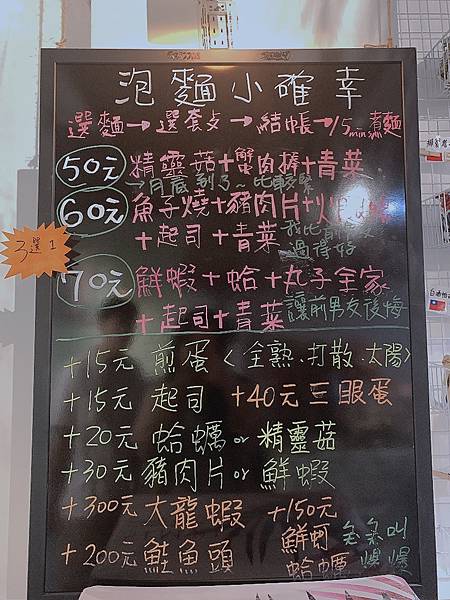 泡麵小確幸
選麵→選套餐→結帳→15min煮麵
50元 精靈菇+蟹肉棒+青菜
→月底到了~比較緊
60元 魚子燒+豬肉片+
+起司+青菜
我比前
過得好
3選1
70元 鮮蝦+蛤+丸子全家
+起司+青菜
讓前男友後悔
+15元 煎蛋〈全熟.打散.太陽〉
+15元 起司 +40元三眼蛋
+20元 蛤蠣or精靈菇
+30元 豬肉片or鮮蝦
+300元 大龍蝦 +150元
+200元 鮭魚頭 鮮蚵
蛤蠣
爆爆